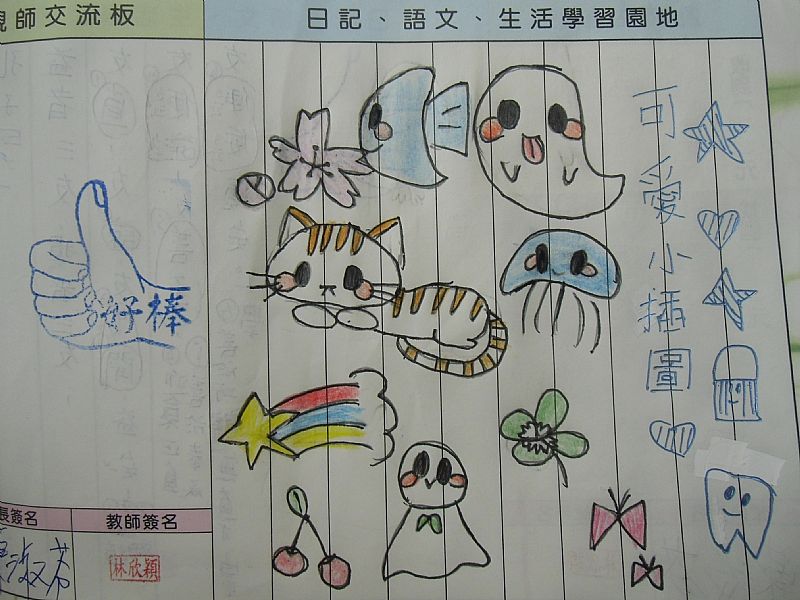 親師交流板
日記、語文、生活學習園地
可愛小插圖
好棒
長簽名
教師簽名
林欣穎